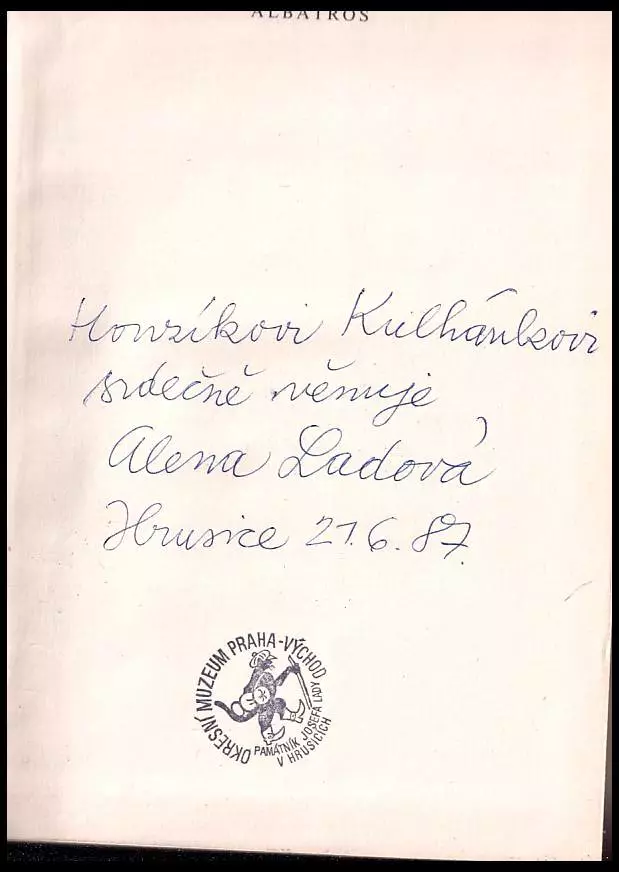 ALBATROS
Honzíkovi Kulhánkovi
srdečně věnuje
Alena Ladová
Hrusice 21.6.87
OKRESNÍ MUZEUM PRAHA-VÝCHOD
PAMÁTNÍK JOSEFA LADY
V HRUSICÍCH